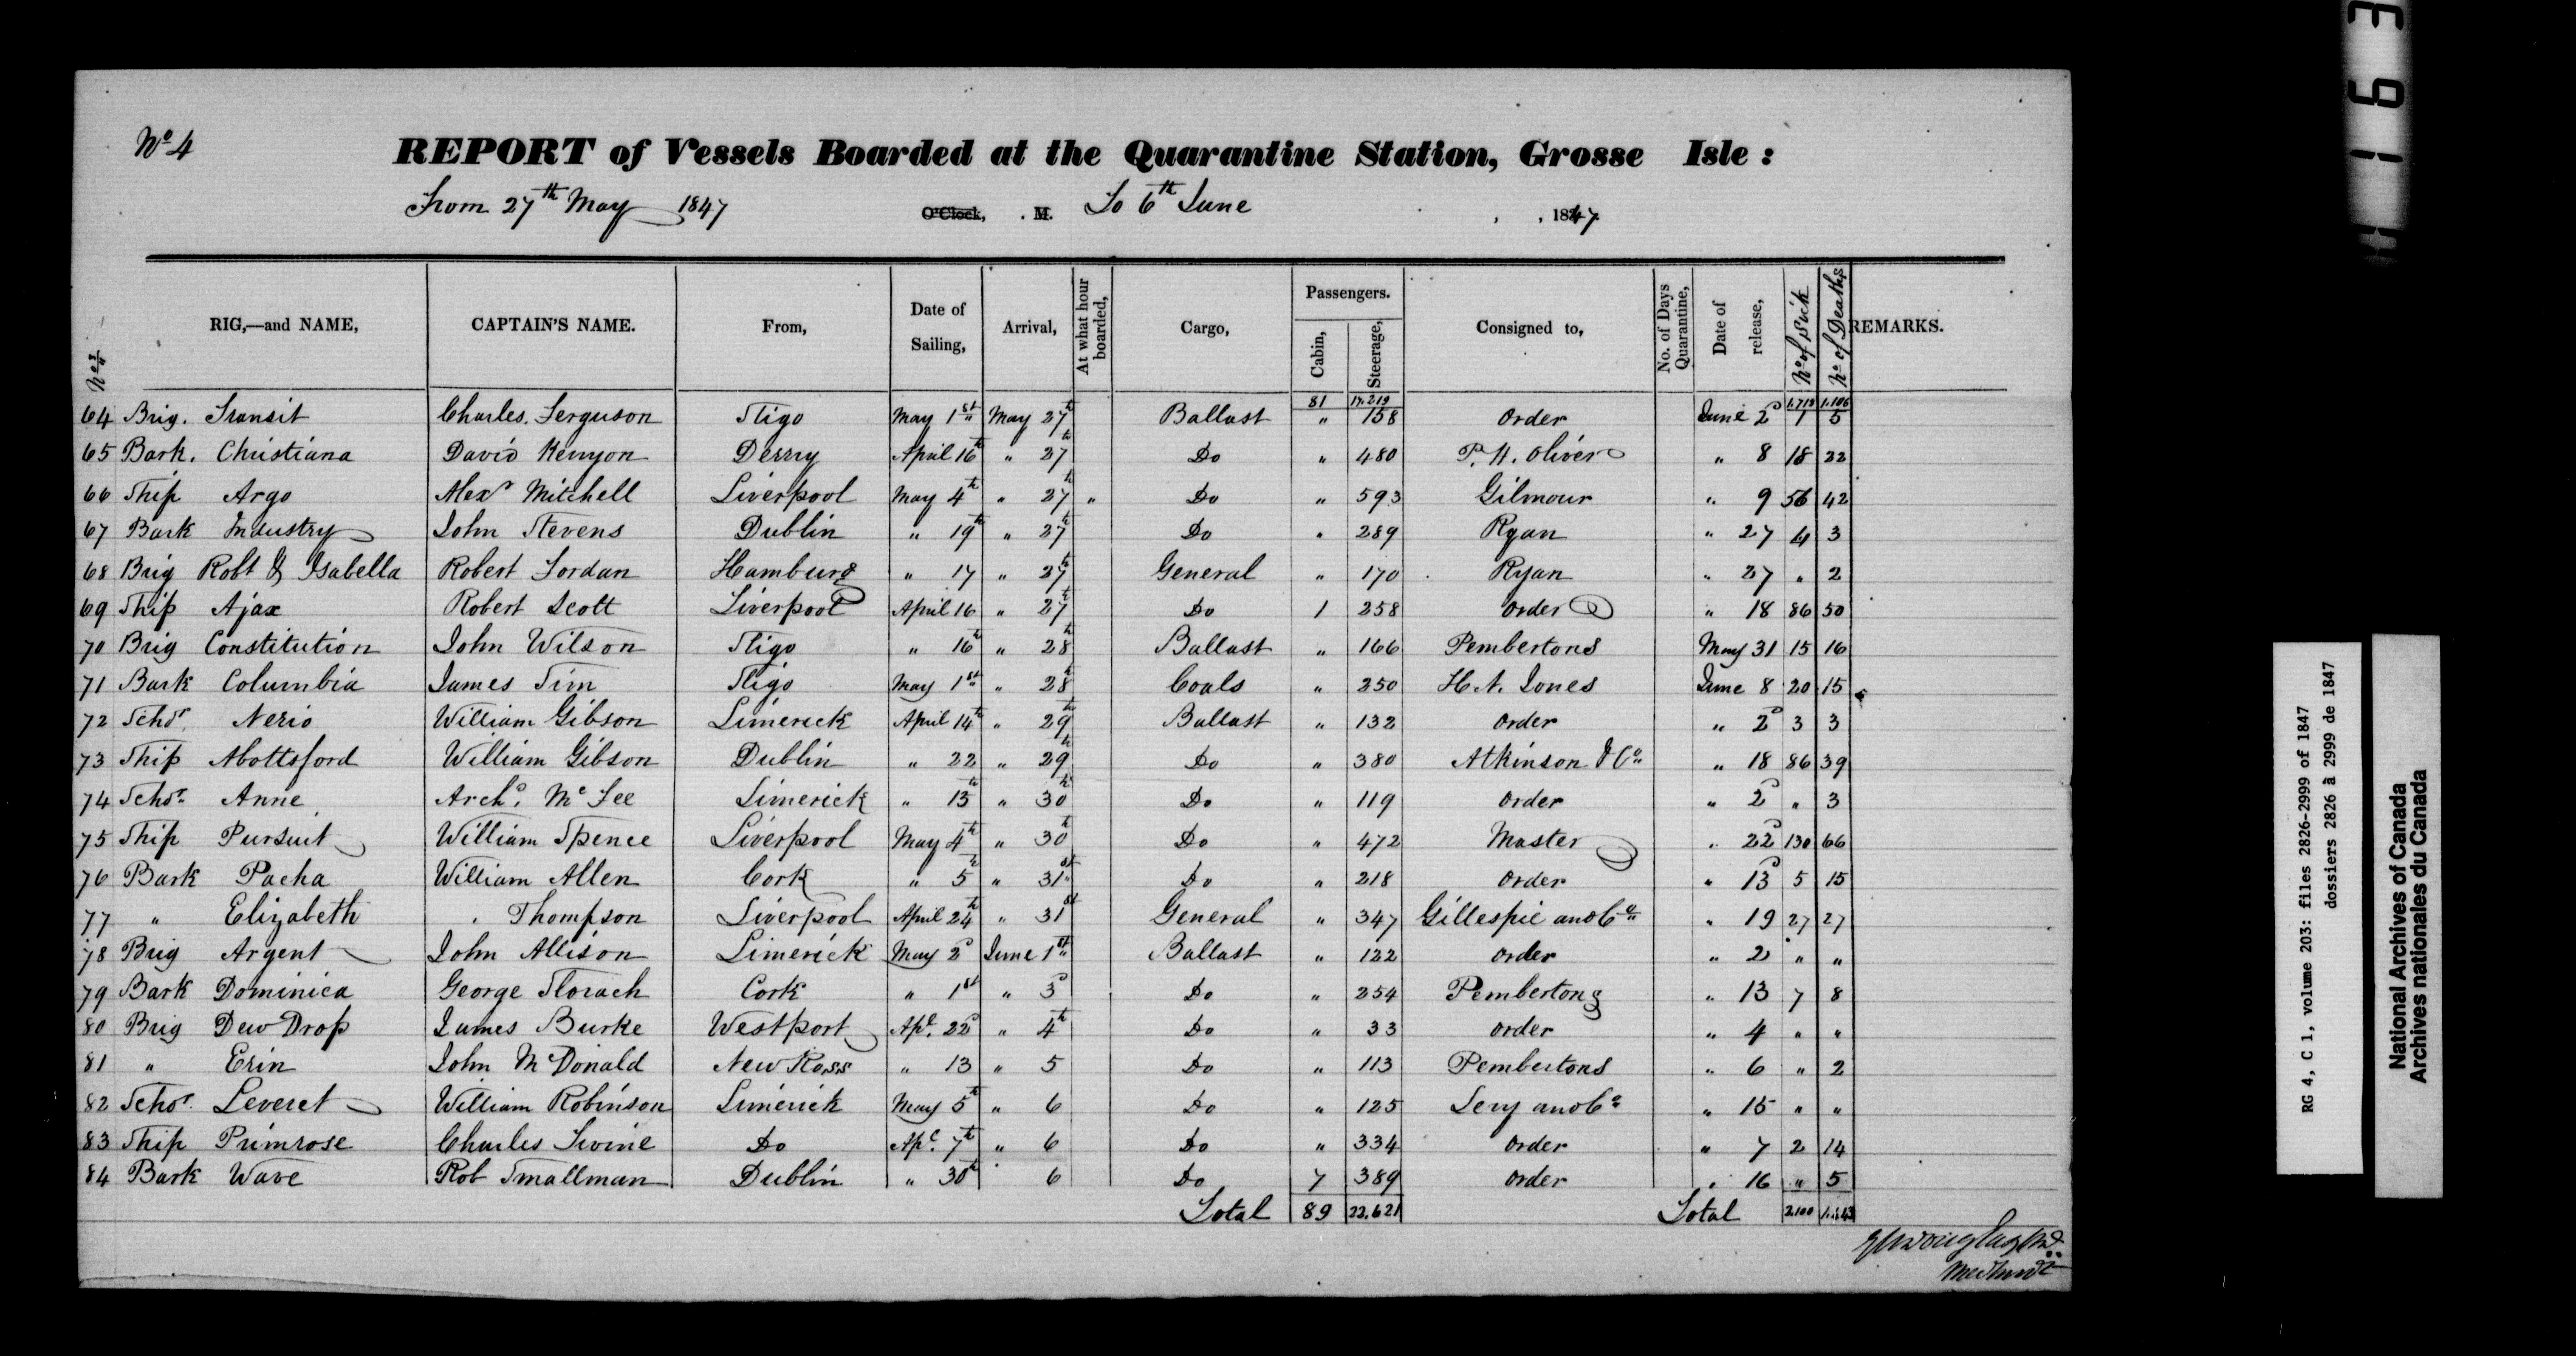 No 4
REPORT of Vessels Boarded at the Quarantine Station, Grosse Isle :
From 27th May 1847 O'Clock, . M. To 6th June , , 1847
Nos RIG,—and NAME, CAPTAIN'S NAME. From, Date of Sailing, Arrival, At what hour boarded, Cargo, Passengers. Cabin, Steerage, Consigned to, No. of Days Quarantine, Date of release, No of Sick No of Deaths REMARKS.
81 17.219 1.106
64 Brig. Transit Charles. Ferguson Sligo May 1st May 27th Ballast " 158 Order June 2d 1 5
65 Bark. Christiana David Kenyon Derry April 16th " 27th Do " 480 P. H. Oliver " 8 18 22
66 Ship Argo Alexr Mitchell Liverpool May 4th " 27th " Do " 593 Gilmour " 9 56 42
67 Bark Industry John Stevens Dublin " 19th " 27th Do " 289 Ryan " 27 4 3
68 Brig Robt & Isabella Robert Jordan Hamburg " 17 " 27th General " 170 Ryan " 27 " 2
69 Ship Ajax Robert Scott Liverpool April 16 " 27th Do 1 258 Order " 18 86 50
70 Brig Constitution John Wilson Sligo " 16th " 28th Ballast " 166 Pembertons May 31 15 16
71 Bark Columbia James Tim Sligo May 1st " 28th Coals " 250 H. N. Jones June 8 20 15
72 Schor Nerio William Gibson Limerick April 14th " 29th Ballast " 132 Order " 2d 3 3
73 Ship Abottsford William Gibson Dublin " 22 " 29th Do " 380 Atkinson & Co " 18 86 39
74 Schor Anne Archd. Mc Fee Limerick " 15th " 30th Do " 119 Order " 2d " 3
75 Ship Pursuit William Spence Liverpool May 4th " 30th Do " 472 Master " 22d 130 66
76 Bark Pacha William Allen Cork " 5th " 31st Do " 218 Order " 13 5 15
77 " Elizabeth " Thompson Liverpool April 24th " 31st General " 347 Gillespie and Co " 19 27 27
78 Brig Argent John Allison Limerick May 2d June 1st Ballast " 122 Order " 2 " "
79 Bark Dominica George Storach Cork " 1st " 3d Do " 254 Pembertons " 13 7 8
80 Brig Dew Drop James Burke Westport Apl. 22d " 4th Do " 33 Order " 4 " "
81 " Erin John Mc Donald New Ross " 13 " 5 Do " 113 Pembertons " 6 " 2
82 Schor. Leveret William Robinson Limerick May 5th " 6 Do " 125 Levy and Co " 15 " "
83 Ship Primrose Charles Irvine Do Apl. 7th " 6 Do " 334 Order " 7 2 14
84 Bark Wave Rob Smallman Dublin " 30th 6 Do 7 389 Order " 16 " 5
Total 89 22.621 Total 2.100
National Archives of Canada
Archives nationales du Canada
RG 4, C 1, volume 203: files 2826-2999 of 1847
dossiers 2826 à 2999 de 1847
1163